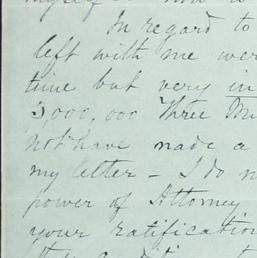 In regard to
left with me were
time but very in
3,000,000 Three M
not have made a
my letter - I do n
power of Attorney
your ratification